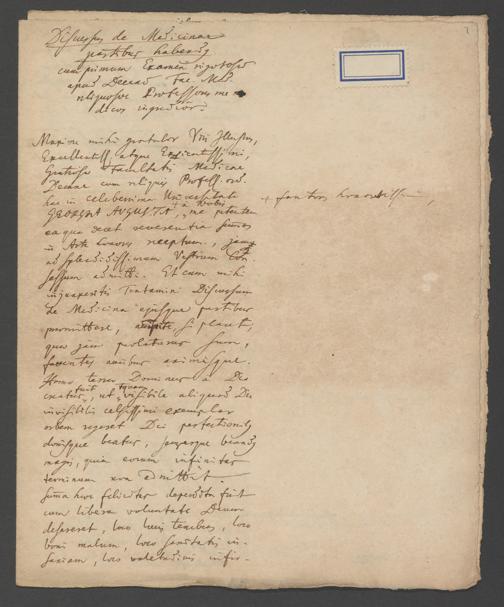 Discursus de Medicinae
partibus habendus
cum primum Examen rigorosum
apud Decan Fac. Med.
reliquosque Professores me
dicos ingredior.
Maxime mihi gratulor Viri Illustres,
Excellentiss. atque
Gratiosae Facultatis Medicae
Decane cum reliquis Professorib.
has in celeberrima Universitate
GEORGIA AUGUSTA, a Vobis me petentem
ea qua decet reverentia
in Arte honores receptum, jamq
ad splendidissimum Vestrum Con-
sessum admitti. Et cum mihi
Tentamini Discursum
de Medicina ejusque partibus
praemittere, si placet,
quae jam prolaturus sum,
faventes auribus animisque.
Homo terrae Dominus a Deo
creatus fuit, ut visibile aliquod Dei
invisibilis celsissimi exemplar
orbem regeret Dei perfectionibus
donisque beatus, semperque beandus
magis, quia eorum infinitas
terminum non admittit.
Summa haec felicitas deperdita fuit
cum libera voluntate Deum
desereret, loco lucis tenebras, loco
boni malum, loco sanitatis in-
saniam, loco valetudinis infir-
+ fautores honoratissimi,